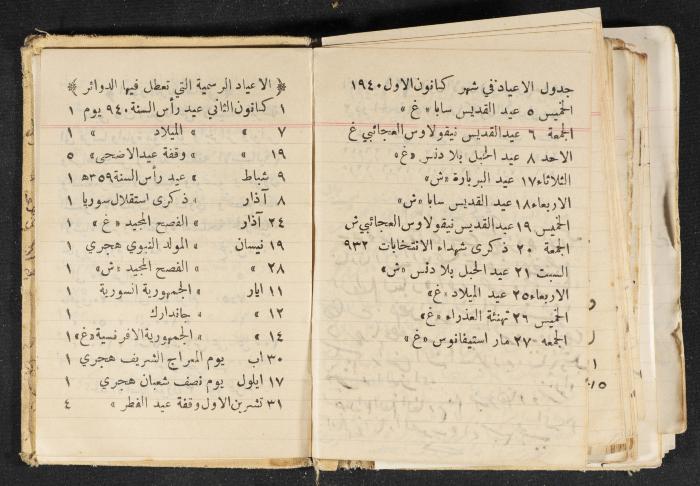 جدول الاعياد في شهر كانون الاول ١٩٤٠
الخميس ٥ عيد القديس سابا «غ»
الجمعة ٦ عيد القديس نيقولاوس العجائبي غ
الاحد ٨ عيد الحبل بلا دنس «غ»
الثلاثاء ١٧ عيد البربارة «ش»
الاربعاء ١٨ عيد القديس سابا «ش»
الخميس ١٩ عيد القديس نيقولاوس العجائبي ش
الجمعة ٢٠ ذكرى شهداء الانتخابات ٩٣٢
السبت ٢١ عيد الحبل بلا دنس «ش»
الاربعاء ٢٥ عيد الميلاد «غ»
الخميس ٢٦ تهنئة العذراء «غ»
الجمعه ٢٧ مار استيفانوس «غ»
﴿ الاعياد الرسمية التي تعطل فيها الدوائر ﴾
١ كانون الثاني عيد رأس السنة ٩٤٠ يوم ١
٧ » » الميلاد » ١
١٩ » » وقفة عيد الاضحى » ٥
٩ شباط » عيد رأس السنة ٣٥٩ﻫ ١
٨ آذار » ذكرى استقلال سوريا ١
٢٤ آذار » الفصح المجيد «غ» ١
١٩ نيسان » المولد النبوي هجري ١
٢٨ » » الفصح المجيد «ش» ١
١١ ايار » الجمهورية انسورية ١
١٢ » » جاندارك ١
١٤ » » الجمهورية الافرنسية «غ» ١
٣٠ آب يوم المعراج الشريف هجري ١
١٧ ايلول يوم نصف شعبان هجري ١
٣١ تشرين الاول وقفة عيد الفطر » ٤